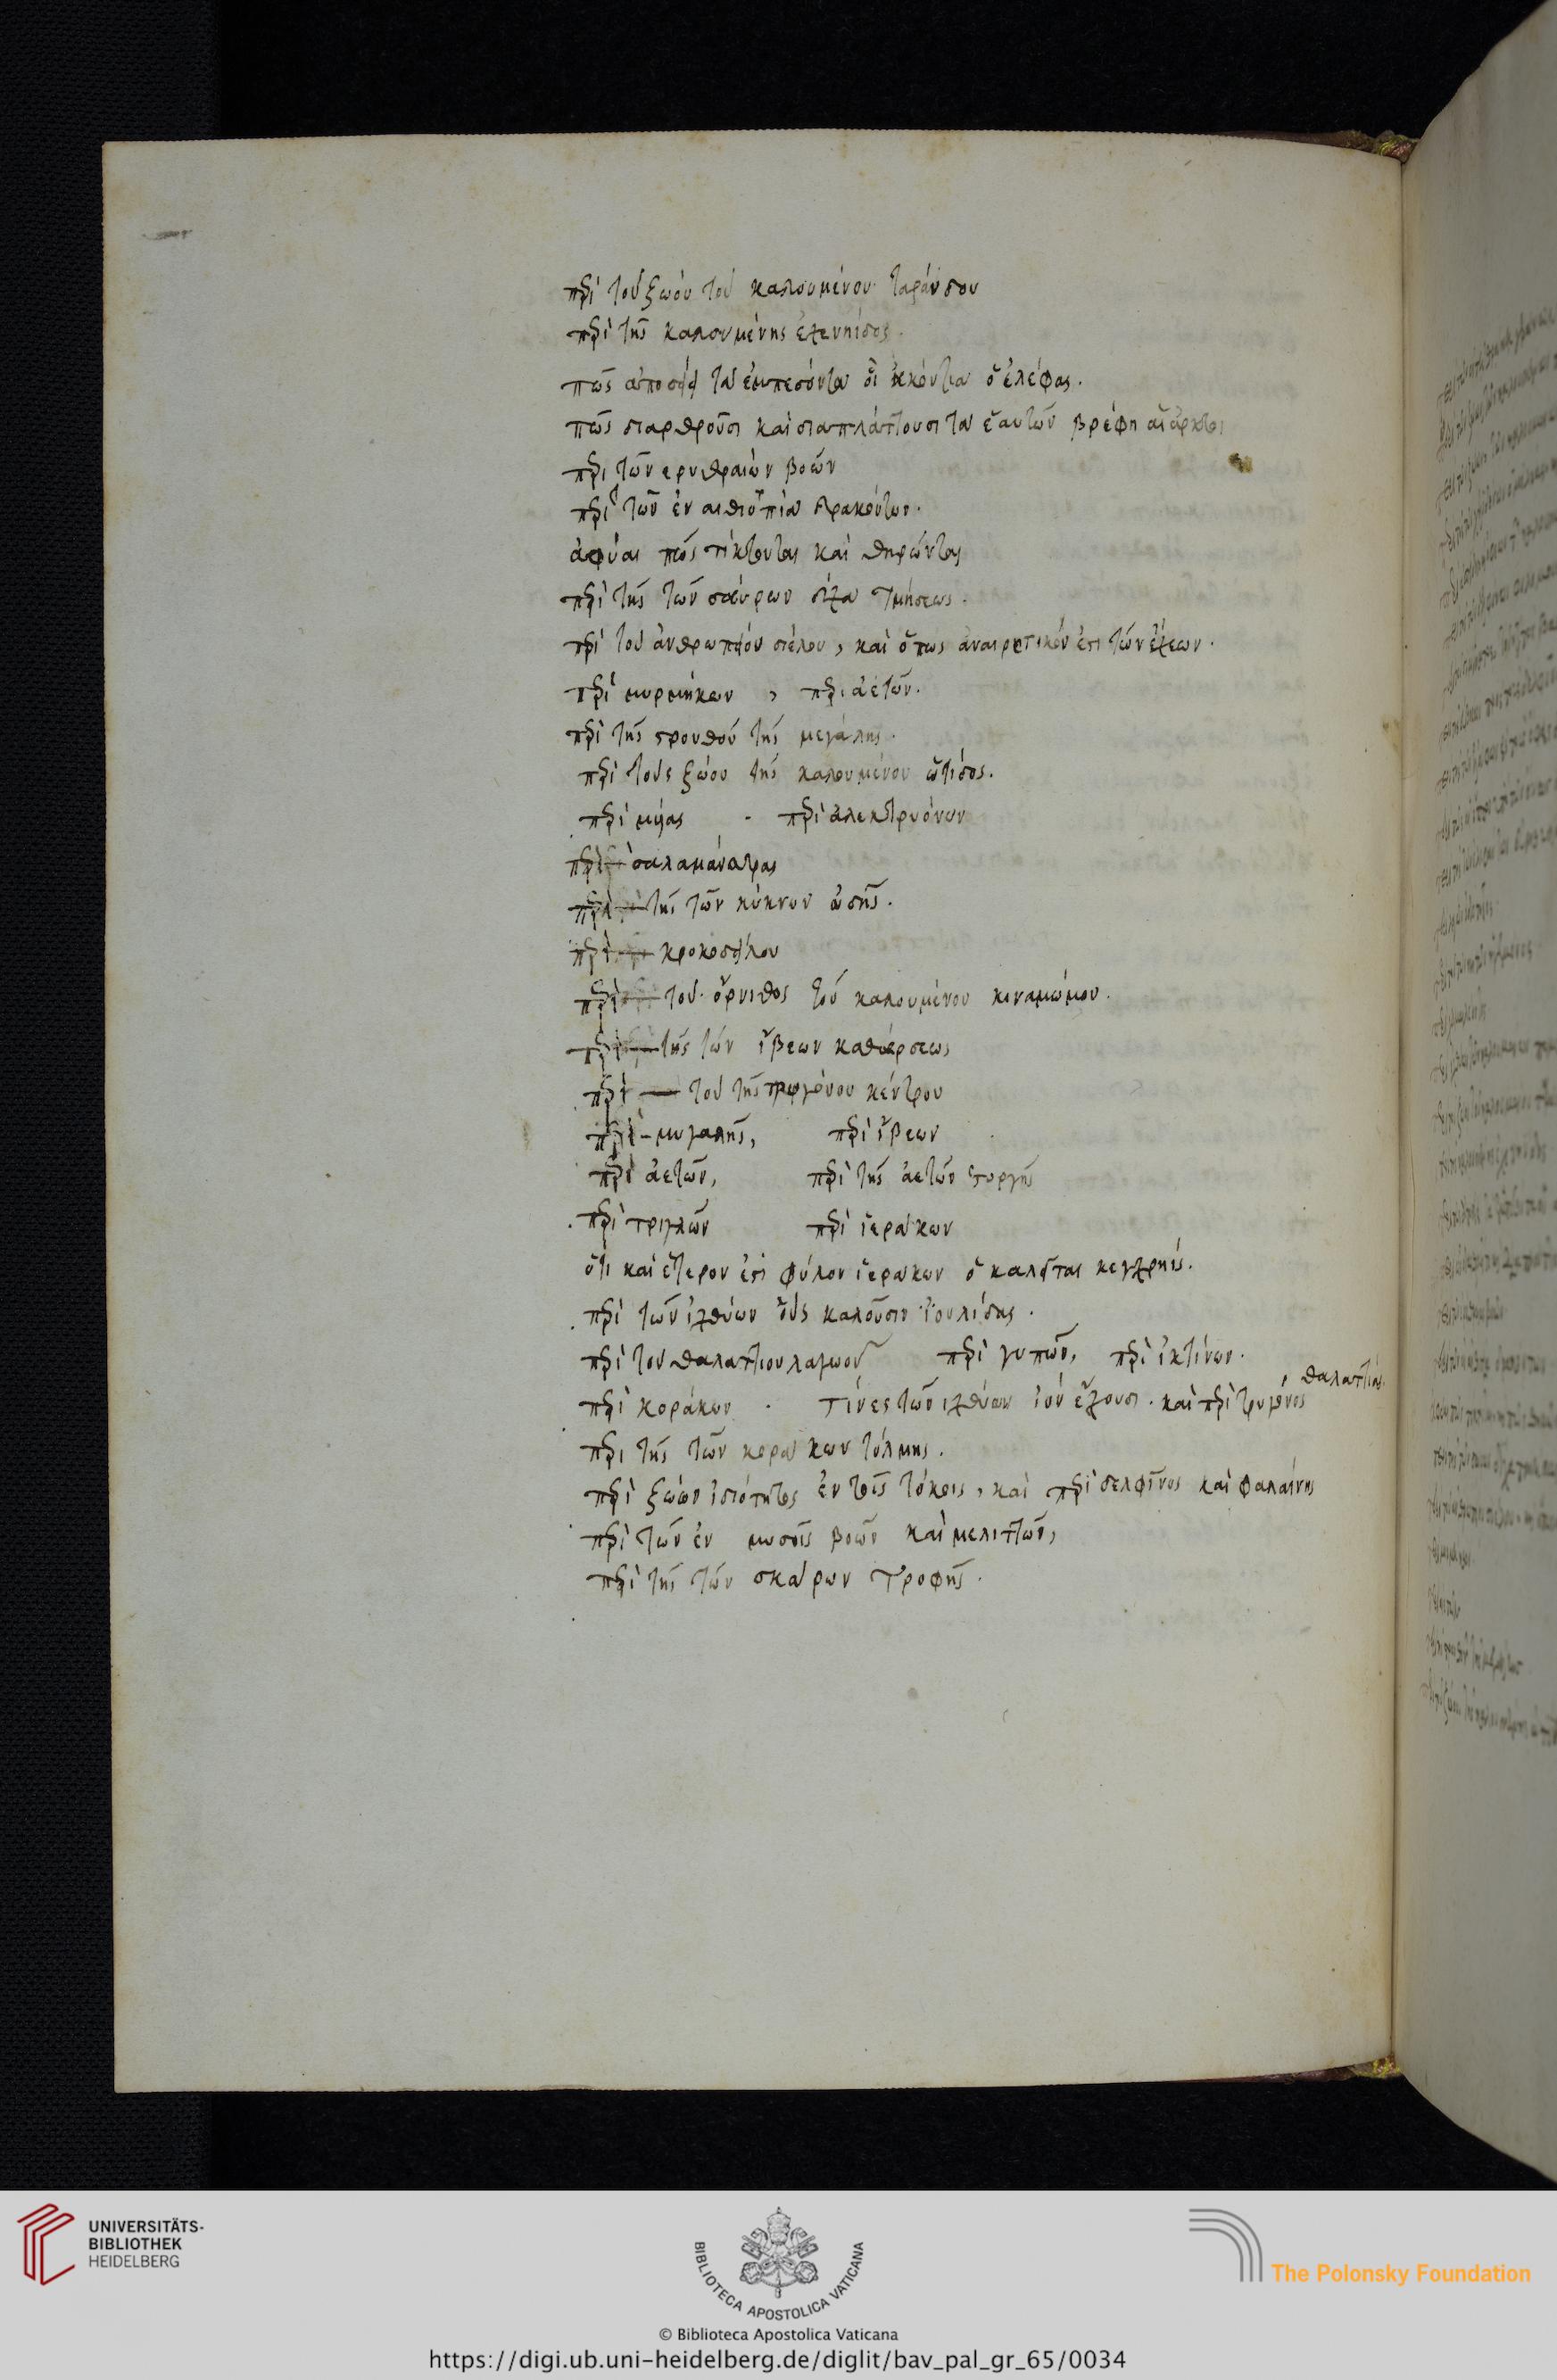 πρὶ τοῦ ζώου τοῦ καλουμένου ταράνδου
πρὶ τῆς καλουμένης ἐχενηίδος.
πῶς ἀποσπᾷ τὰ ἐμπεσόντα οἱ ἀκόντια ὁ ἐλέφας.
πῶς διαρθροῦσι καὶ διαπλάττουσι τὰ ἑαυτῶν βρέφη αἱ ἄρκτοι
πρὶ τῶν ερυθραίων βοῶν
πρὶ τῶν ἐν αιθιοπία δρακόντων.
ἀφύαι πῶς τίκτονται καὶ θηρῶνται
πρὶ τῆς τῶν σαύρων δίχα τμήσεως.
πρὶ τοῦ ἀνθρωπείου σιέλου, καὶ ὅπως ἀναιρετικόν ἐστι τῶν ἔχεων.
πρὶ μυρμήκων , πρι ἀετῶν.
πρὶ τῆς στρουθοῦ τῆς μεγάλης.
πρὶ τοῦ ζώου τῆς καλουμένου ὠτίδος.
πρὶ μύας . πρὶ ἀλεκτρυόνων
πρὶ σαλαμάνδρας
πρὶ τῆς τῶν κύκνων ὠδῆς.
πρὶ κροκοδείλου
πρὶ τοῦ ὄρνιθος τοῦ καλουμένου κιναμώμου.
πρὶ τῆς τῶν ἴβεων καθάρσεως
πρὶ τοῦ τῆς τρυγόνου κέντρου
πρὶ μυγαλῆς, πρὶ ἴβεων
πρὶ ἀετῶν, πρὶ τῆς ἀετῶν στοργῆς
πρὶ τριγλῶν πρὶ ἱεράκων
ὅτι καὶ ἕτερον ἐστὶ φύλον ἱεράκων ὃ καλεῖται κεγχρηίς.
πρὶ τῶν ἰχθύων οὓς καλοῦσιν ἰουλίδας.
πρὶ του θαλαττίου λαγωοῦ πρὶ γυπῶν, πρὶ ἰκτίνων.
πρὶ κοράκων . τίνες τῶν ιχθύων ἰὸν ἔχουσι. καὶ πρὶ τρυγόνος θαλαττίας.
πρι τῆς τῶν κοράκων τόλμης.
πρὶ ζώων ἰδιότητος ἐν τοῖς τόκοις, καὶ πρὶ δελφῖνος καὶ φαλαίνης
πρὶ τῶν ἐν μυσοῖς βοῶν καὶ μελιττῶν,
πρὶ τῆς τῶν σκάρων τροφῆς.
UNIVERSITÄTS-
BIBLIOTHEK
HEIDELBERG
BIBLIOTECA APOSTOLICA VATICANA
The Polonsky Foundation
© Biblioteca Apostolica Vaticana
https://digi.ub.uni-heidelberg.de/diglit/bav_pal_gr_65/0034